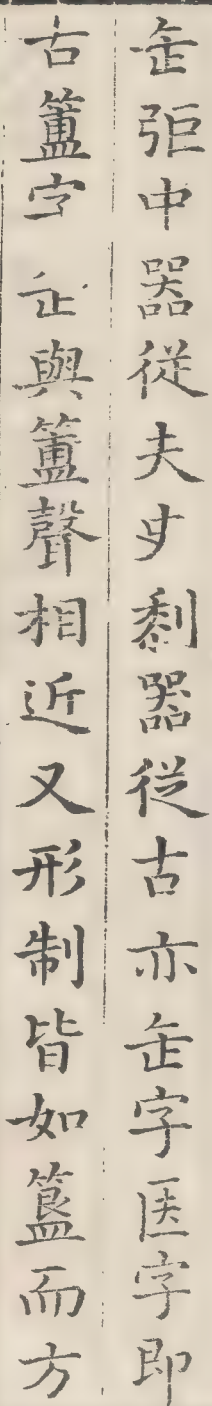 缶弡中器從夫史黎器從古亦缶字医字即
古簠字缶與簠聲相近又形制皆如簋而方